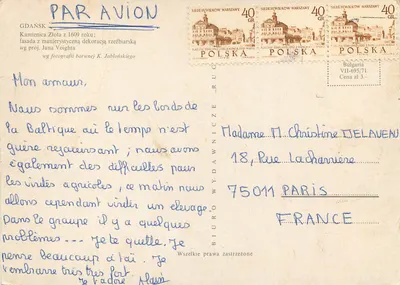 PAR AVION
GDAŃSK
Kamienica Złota z 1609 roku;
fasada z manierystyczną dekoracją rzeźbiarską
wg proj. Jana Voighta
wg fotografii barwnej K. Jabłońskiego
700 LAT WARSZAWY
40 GR
POLSKA
40 GR
POLSKA
40 GR
POLSKA
VII-695/71
Cena zł 1
BIURO WYDAWNICZE RUCH
Mon amour,
Nous sommes sur les bords de
la Baltique où le temps n'est
guère rejouissant; nous avons
également des difficultés pour
les visites agricoles, ce matin nous
allons cependant visiter un élevage.
Dans le groupe il y a quelques
problèmes --- Je te quitte. Je
pense beaucoup à toi. Je
t'embrasse très très fort.
Je t'adore Alain
Madame M. Christine DELAVEAU
18, Rue Lacharriere
75011 PARIS
FRANCE
Wszelkie prawa zastrzeżone